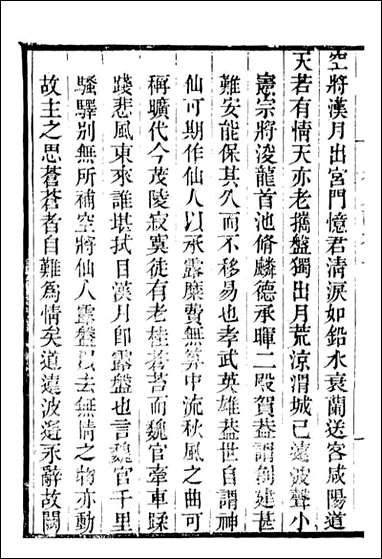 空將漢月出宮門憶君清淚如鉛水衰蘭送客咸陽道
天若有情天亦老攜盤獨出月荒涼渭城已遠波聲小
憲宗將浚龍首池脩麟德承暉二殿賀葢謂創建甚
難安能保其久而不移易也孝武英雄葢世自謂神
仙可期作仙人以承露糜費無算中流秋風之曲可
稱曠代今茂陵寂寞徒有老桂蒼苔而魏官牽車蹂
踐悲風東來誰堪拭目漢月卽露盤也言魏官千里
騷驛別無所補空將仙人露盤以去無情之物亦動
故主之思蒼蒼者自難為情矣道遠波遙永辭故闕